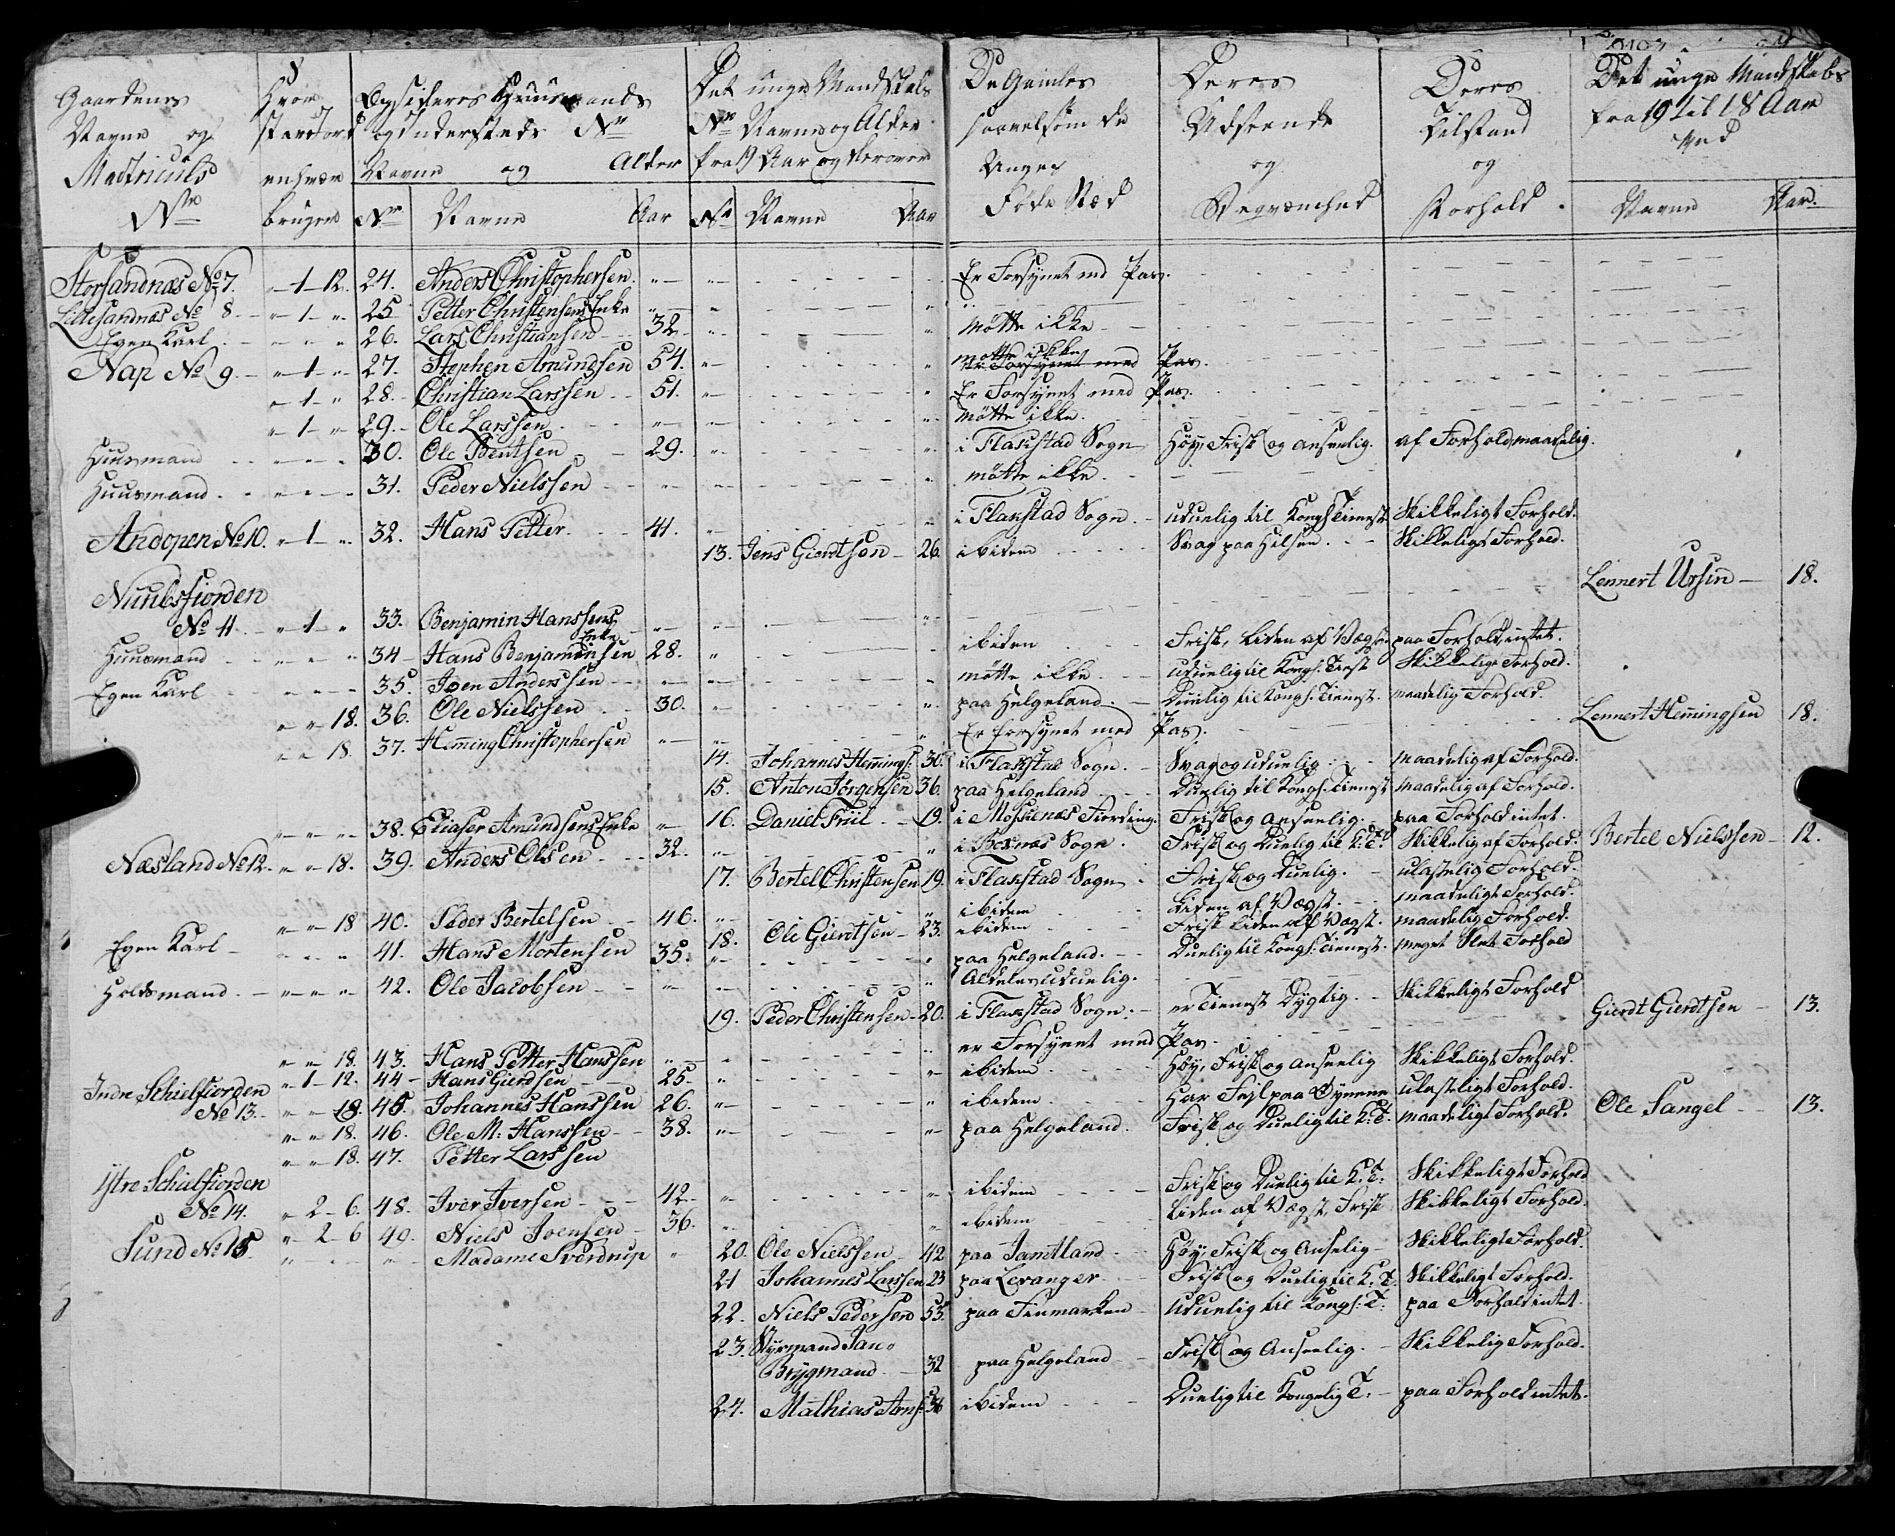 Gaardenes Navne og Matriculs No
Hvor stor Jord enhver bruger
Opsidderes Huusmands og Indersteds Nr Navne og Alder
Nr Navne Aar
Det unge Mandskabs Nr Navne og Alder fra 19 Aar og derover
Nr Navne Aar
De Gamles saavelsom de Unges Føde Stæd
Deres Udseende og Beqvæmhed
Deres Tilstand og Forhold.
Det unge Mandskabs fra 19 til 18 Aar ved
Navne Aar.
Storsandnæs No 7. „ 1 - 12. 24. Anders Christophersen. Er Forsynet med Pas.
Lillesandnæs No 8. „ 1 „ 25 Petter Christensens Enke
Egen Karl 26. Lars Christiansen 32 møtte ikke
Nap No 9. „ 1 „ 27. Stephen Amundsen 54. møtte ikke
Er Forsynet med Pas.
„ 1 „ 28. Christian Larssen 51. Er Forsynet med Pas.
„ 1 „ 29. Ole Larssen møtte ikke.
Huusmand 30. Ole Bentsen 29. i Flakstad Sogn Høy, Frisk og anseelig. af Forhold maadelig.
Huusmand 31. Peder Nielssen møtte ikke.
Andopen No 10. „ 1 „ 32. Hans Petter 41. i Flakstad Sogn. uduelig til Kongs Tieneste Skikkeligt Forhold.
13. Jens Giertsen 26. ibidem Svag paa Helsen. Skikkeligt Forhold.
Lennert Ursin 18.
Nuulsfiorden
No 11. „ 1 „ 33. Benjamin Hanssens Enke
Huusmand 34 Hans Benjaminsen 28. ibidem Frisk, liden af Vægst paa Forhold intet.
Egen Karl 35. Joen Anderssen møtte ikke uduelig til Kongs. Tienest Skikkeligt Forhold.
„ „ 18. 36. Ole Nielssen 30. paa Helgeland. Duelig til Kongs. Tienest. maadelig Forhold
Lennert Hemingsen 18.
„ „ 18. 37. Heming Christophersen Er forsynet med Pas.
14. Johannes Hemings: 30. i Flakstad Sogn. Svag og uduelig. maadelig af Forhold.
15. Anton Jörgensen 36. paa Helgeland Duelig til Kongs. Tienest maadelig af Forhold.
38. Eliaser Amundsens Enke 16. Daniel Friil 19. i Mossenæs Fierding. Frisk og anseelig. paa Forhold intet.
Næsland No 12. „ „ 18. 39. Anders Olsen 32. i Boxnæs Sogn. Frisk og Duelig til K: T: Skikkelig af Forhold. Bertel Nielssen 12.
17. Bertel Christensen 19. i Flakstad Sogn Frisk og Duelig. ulastelig Forhold.
„ „ 18 40. Peder Bertelsen 46. ibidem liden af Vægst. maadeligt Forhold.
18. Ole Giertsen 23. ibidem Frisk liden af Vægst. maadelig Forhold.
Egen Karl 41. Hans Mortensen 35. paa Helgeland. Duelig til Kongs. Tienest. meget Slet Forhold
Holdsmand. 42. Ole Jacobsen Aldeles uduelig.
19. Peder Christensen 20. i Flakstad Sogn. er Tienest Dygtig. Skikkeligt Forhold
Gierdt Gierdtsen 13.
„ „ 18. 43. Hans Petter Hanssen er Forsynet med Pas
„ 1 - 12. 44 Hans Gierdsen 25. ibidem Høy, Frisk og anseelig Skikkeligt Forhold.
Indre Schielfiorden
No 13. „ „ 18. 45. Johannes Hanssen 26. ibidem Har Feil paa Øynene ulasteligt Forhold.
Ole Sangel 13.
„ „ 18. 46. Ole M: Hanssen 38. paa Helgeland. Frisk og Duelig til K: T: maadeligt Forhold.
„ „ 18. 47. Petter Larssen
Ytre Schielfiorden
No 14. „ 2 - 6. 48. Iver Iversen 42. ibidem Frisk og Duelig til K: T: Skikkeligt Forhold
„ 2 - 6 49. Niels Joensen 36. ibidem liden af Vægst, Frisk Skikkeligt Forhold.
Sund No 15. Madame Sverdrup
20. Ole Nielssen 42 paa Jamtland Høy, Frisk og Anselig Skikkeligt Forhold.
21 Johannes Larssen 23 paa Levanger Frisk og Duelig til K: T: Skikkeligt Forhold.
22. Niels Pedersen 55. paa Finmarken uduelig til Kongs: T: paa Forhold intet.
23. Styrmand Jan
Brygmand 32 paa Helgeland Frisk og Anseelig. Skikkelig Forhold.
24. Mathias Arns: 36 ibidem Duelig til Kongelig T: paa Forhold intet.